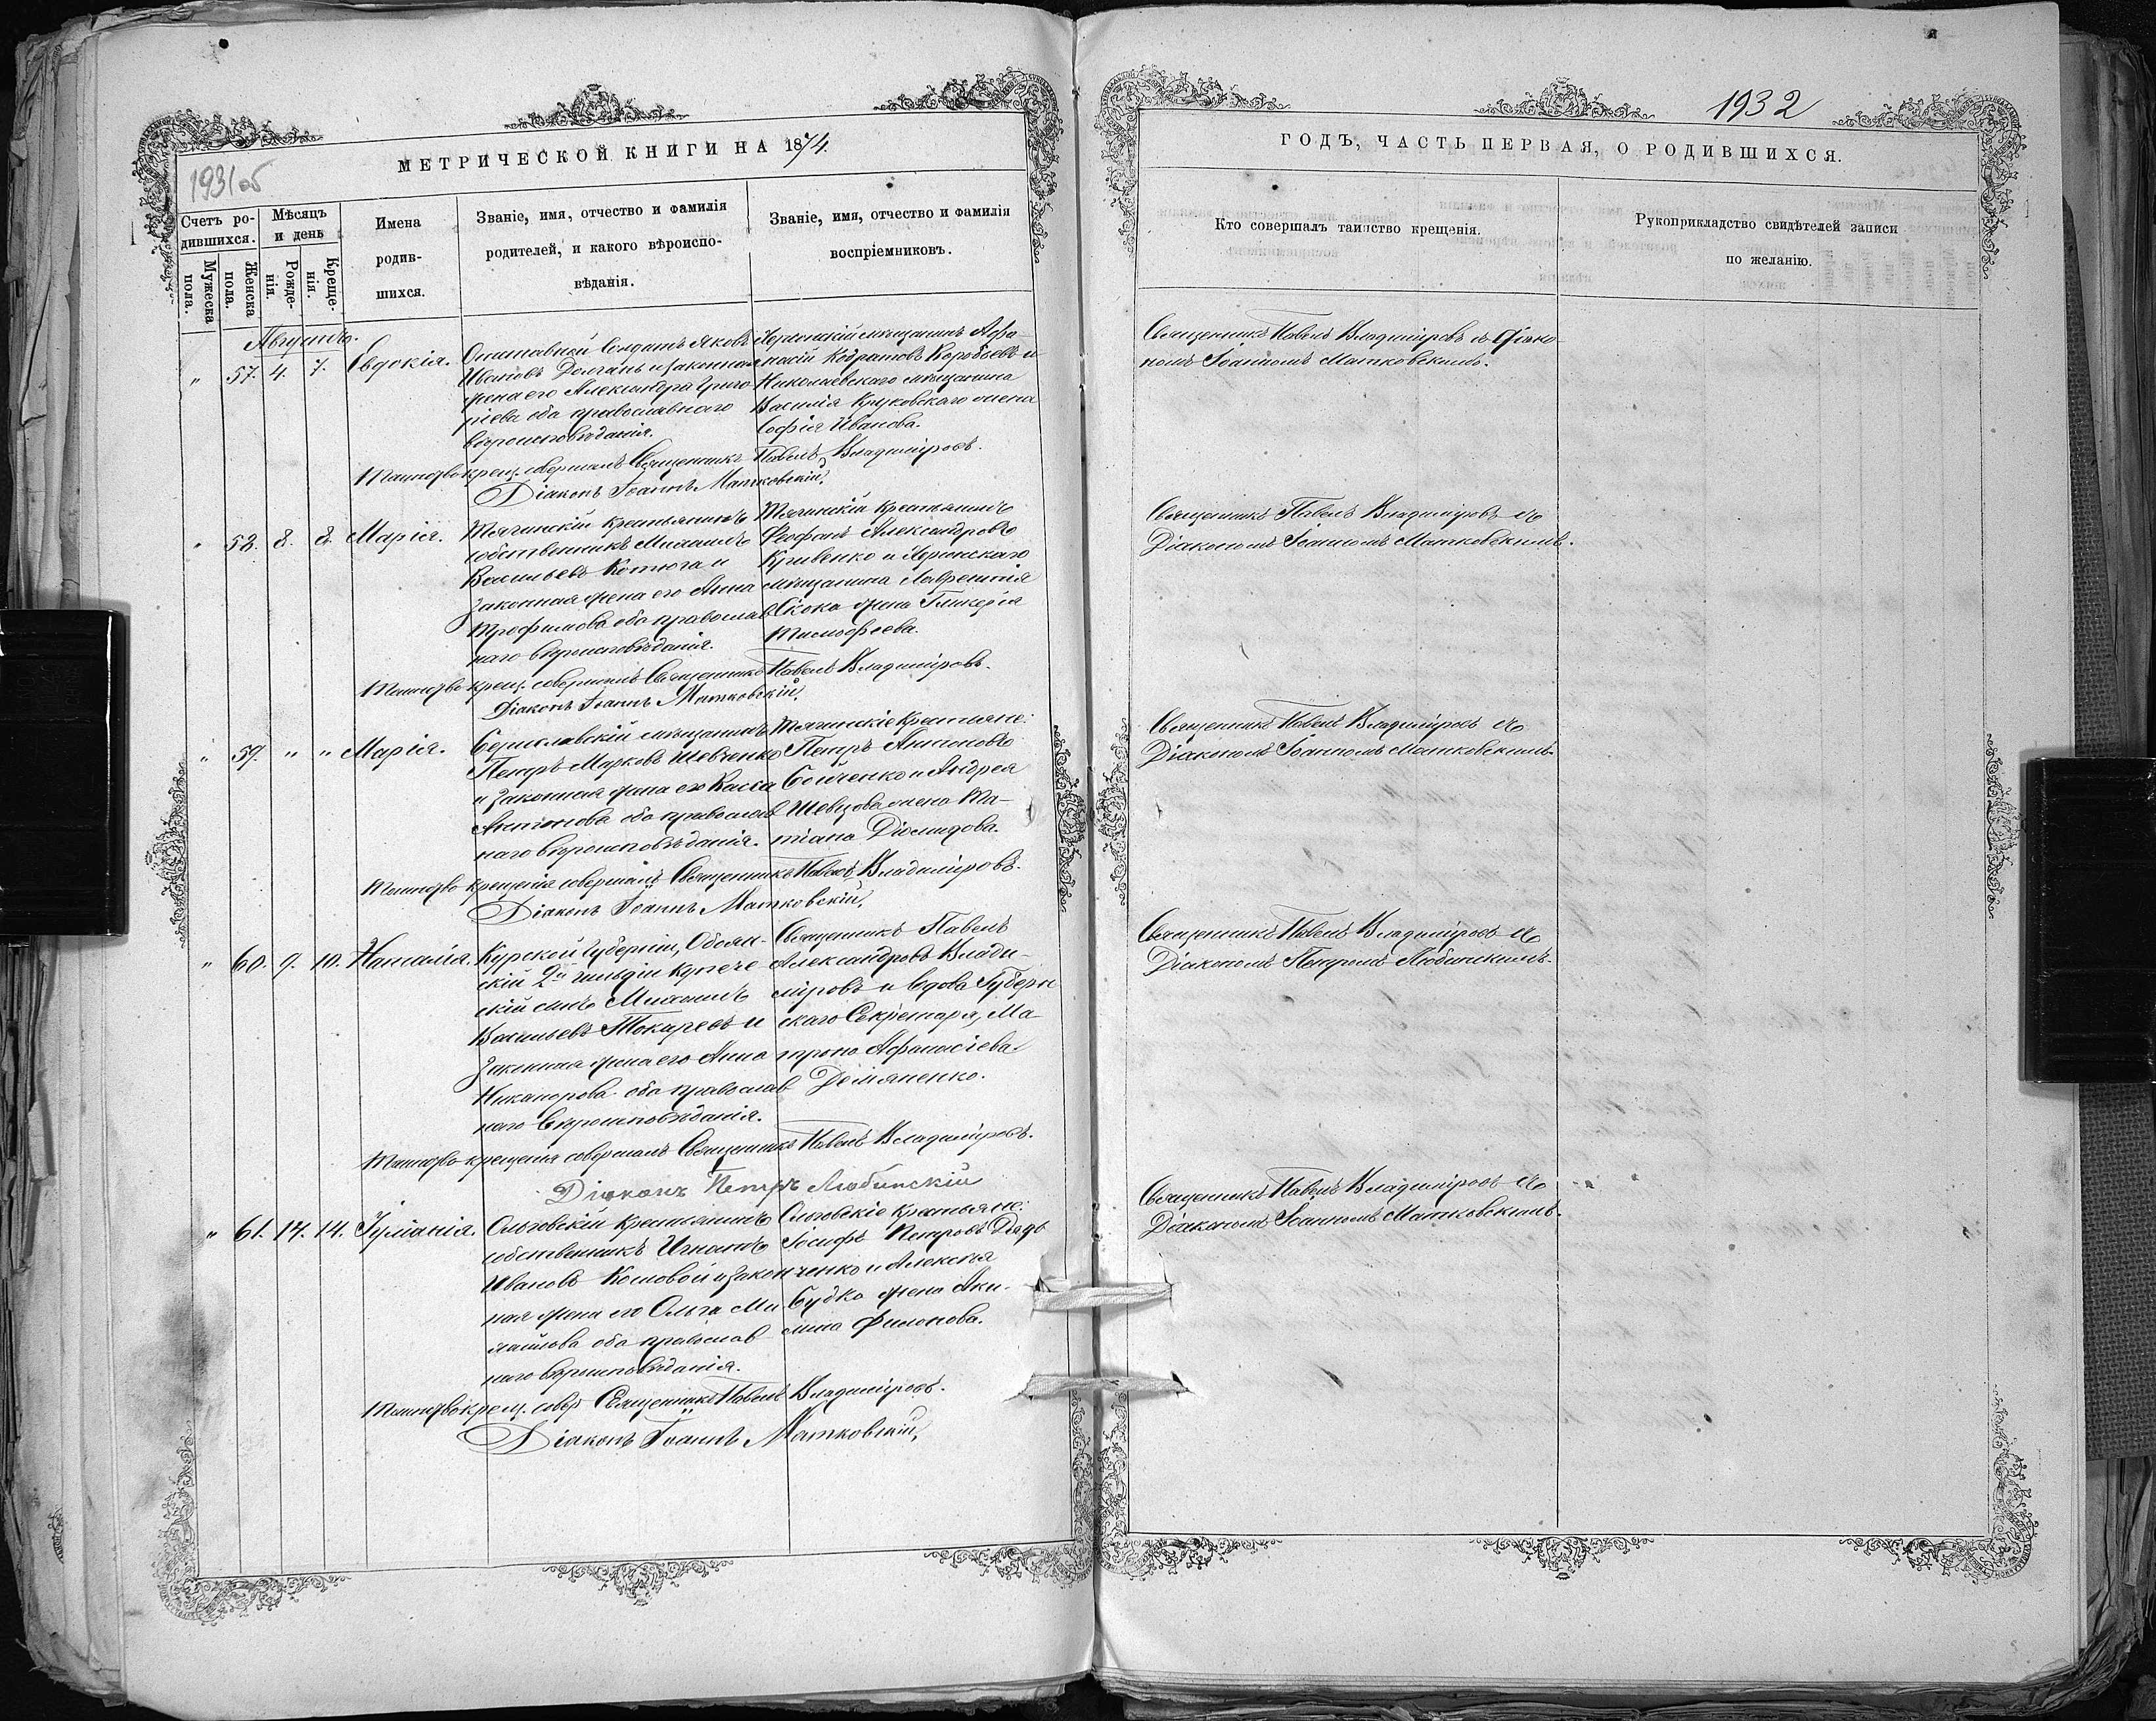 МЕТРИЧЕСКОЙ КНИГИ НА 1874.
1931об
Счетъ ро-
дившихся.
Мужеска
пола.
Женска
пола.
Мѣсяцъ
и день
Рожде-
нія.
Креще-
нія.
Имена
родив-
шихся.
Званіе, имя, отчество и фамилія
родителей, и какого вѣроиспо-
вѣданія.
Званіе, имя, отчество и фамилія
воспріемниковъ.
Августъ.
" 57. 4. 7. Евдокія.
Отставной Солдатъ Яковъ
Ивановъ Долгань и законная
жена его Александра Григо
ріева оба православнаго
вѣроисповѣданія.
Херсонскій мѣщанинъ Афа-
насій Кодратовъ Коробьевъ и
Николаевскаго мѣщанина
Василія Круковскаго жена
Софія Иванова.
Таинство крещ. совершалъ Священникъ Павелъ Владиміровъ.
Діаконъ Іоаннъ Матковскій.
" 58. 8. 8. Марія.
Тягинскій крестьянинъ
собственникъ Михаилъ
Васильевъ Котюга и
законная жена его Анна
Трофимова оба православ
наго вѣроисповѣданія.
Тягинскій крестьянинъ
Феофанъ Александровъ
Кривенко и Херсонскаго
мѣщанина Лаврентія
Скока жена Гликерія
Тимофеева.
Таинство крещ. совершалъ Священникъ Павелъ Владиміровъ.
Діаконъ Іоаннъ Матковскій.
" 59. " " Марія.
Бериславскій мѣщанинъ
Петръ Марковъ Шевченко
и законная жена его Васса
Антонова оба православ
наго вѣроисповѣданія.
Тягинскіе крестьяне:
Петръ Антоновъ
Бойченко и Андрея
Шевцова жена Та-
тіана Діомидова.
Таинство крещенія совершалъ Священникъ Павелъ Владиміровъ.
Діаконъ Іоаннъ Матковскій.
" 60. 9. 10. Наталія.
Курской Губерніи, Обоян-
скій 2й гильдіи купече
скій сынъ Михаилъ
Васильевъ Токаревъ и
законная жена его Анна
Никанорова оба православ
наго вѣроисповѣданія.
Священникъ Павелъ
Александровъ Влади-
міровъ и вдова Губерн
скаго Секретаря, Ма
трона Афанасіева
Демяненко.
Таинство крещенія совершалъ Священникъ Павелъ Владиміровъ.
Діаконъ Петръ Любинскій
" 61. 14. 14. Іуліанія.
Ольговскій крестьянинъ
собственникъ Игнатъ
Ивановъ Кошовой и закон
ная жена его Ольга Ми
хайлова оба православ
наго вѣроисповѣданія.
Ольговскіе крестьяне:
Іосифъ Петровъ Дяд
ченко и Алексѣя
Будка жена Аки-
лина Филонова.
Таинство крещ. совер Священникъ Павелъ Владиміровъ.
Діаконъ Іоаннъ Матковскій.
1932
ГОДЪ, ЧАСТЬ ПЕРВАЯ, О РОДИВШИХСЯ.
Кто совершалъ таинство крещенія.
Рукоприкладство свидѣтелей записи
по желанію.
Священникъ Павелъ Владиміровъ съ Діако
номъ Іоанномъ Матковскимъ.
Священникъ Павелъ Владиміровъ съ
Діакономъ Іоанномъ Матковскимъ.
Священникъ Павелъ Владиміровъ съ
Діакономъ Іоанномъ Матковскимъ.
Священникъ Павелъ Владиміровъ съ
Діакономъ Петромъ Любинскимъ.
Священникъ Павелъ Владиміровъ съ
Діакономъ Іоанномъ Матковскимъ.